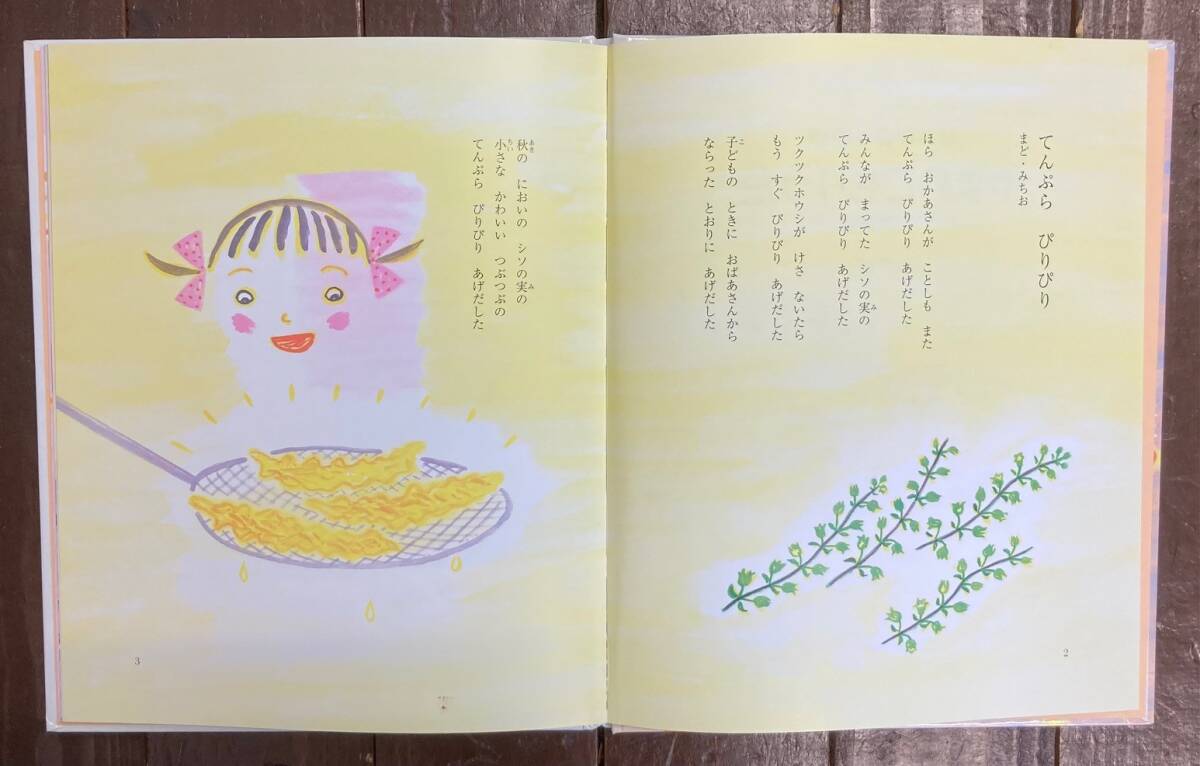 てんぷら ぴりぴり
まど・みちお
ほら おかあさんが ことしも また
てんぷら ぴりぴり あげだした
みんなが まってた シソの実の
てんぷら ぴりぴり あげだした
ツクツクホウシが けさ ないたら
もう すぐ ぴりぴり あげだした
子どもの ときに おばあさんから
ならった とおりに あげだした
2
秋の においの シソの実の
小さな かわいい つぶつぶの
てんぷら ぴりぴり あげだした
3